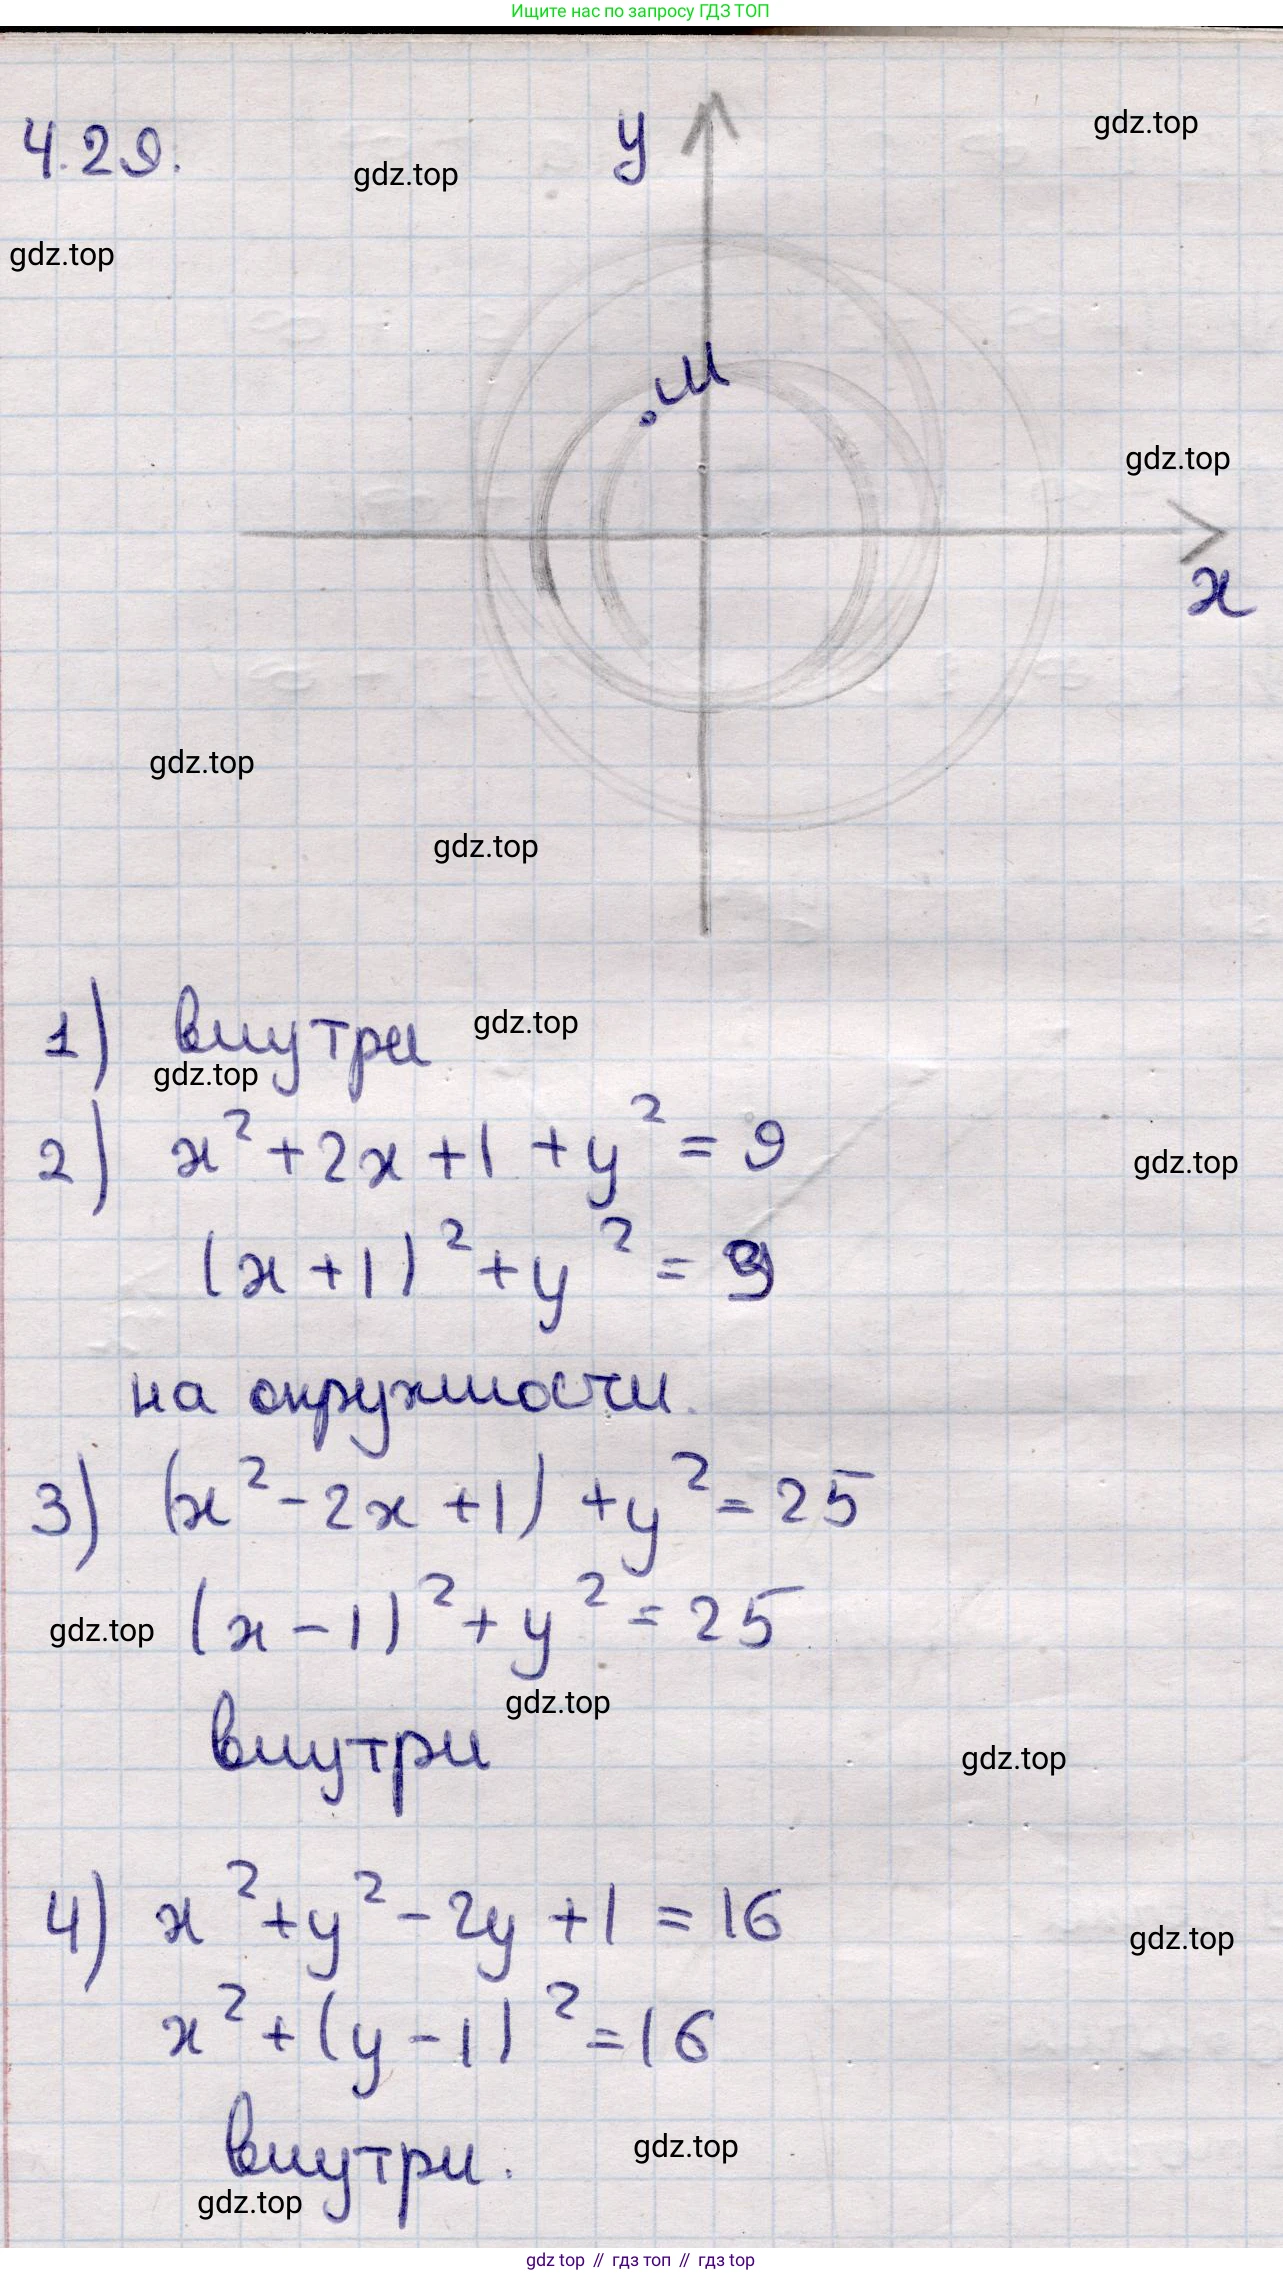 Ищите нас по запросу ГДЗ ТОП
4.29.
y
gdz.top
gdz.top
gdz.top
M
gdz.top
x
gdz.top
gdz.top
1) внутри
gdz.top
gdz.top
2) x² + 2x + 1 + y² = 9
gdz.top
(x + 1)² + y² = 9
на окружности.
3) (x² - 2x + 1) + y² = 25
(x - 1)² + y² = 25
gdz.top
gdz.top
внутри
gdz.top
4) x² + y² - 2y + 1 = 16
gdz.top
x² + (y - 1)² = 16
внутри.
gdz.top
gdz.top
gdz top // гдз топ // гдз top